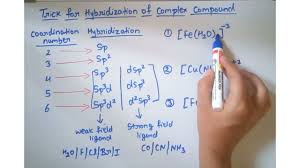 Trick for Hybridization of Complex Compound
Coordination number Hybridization
2 → Sp
3 → Sp²
4 → Sp³ dSp²
5 → Sp³d dSp³
6 → Sp³d² d²Sp³
weak field ligand Strong field ligand
H₂O/F/Cl/Br/I CO/CN/NH₃
① [Fe(H₂O)
② [Cu(N
③ [Fe